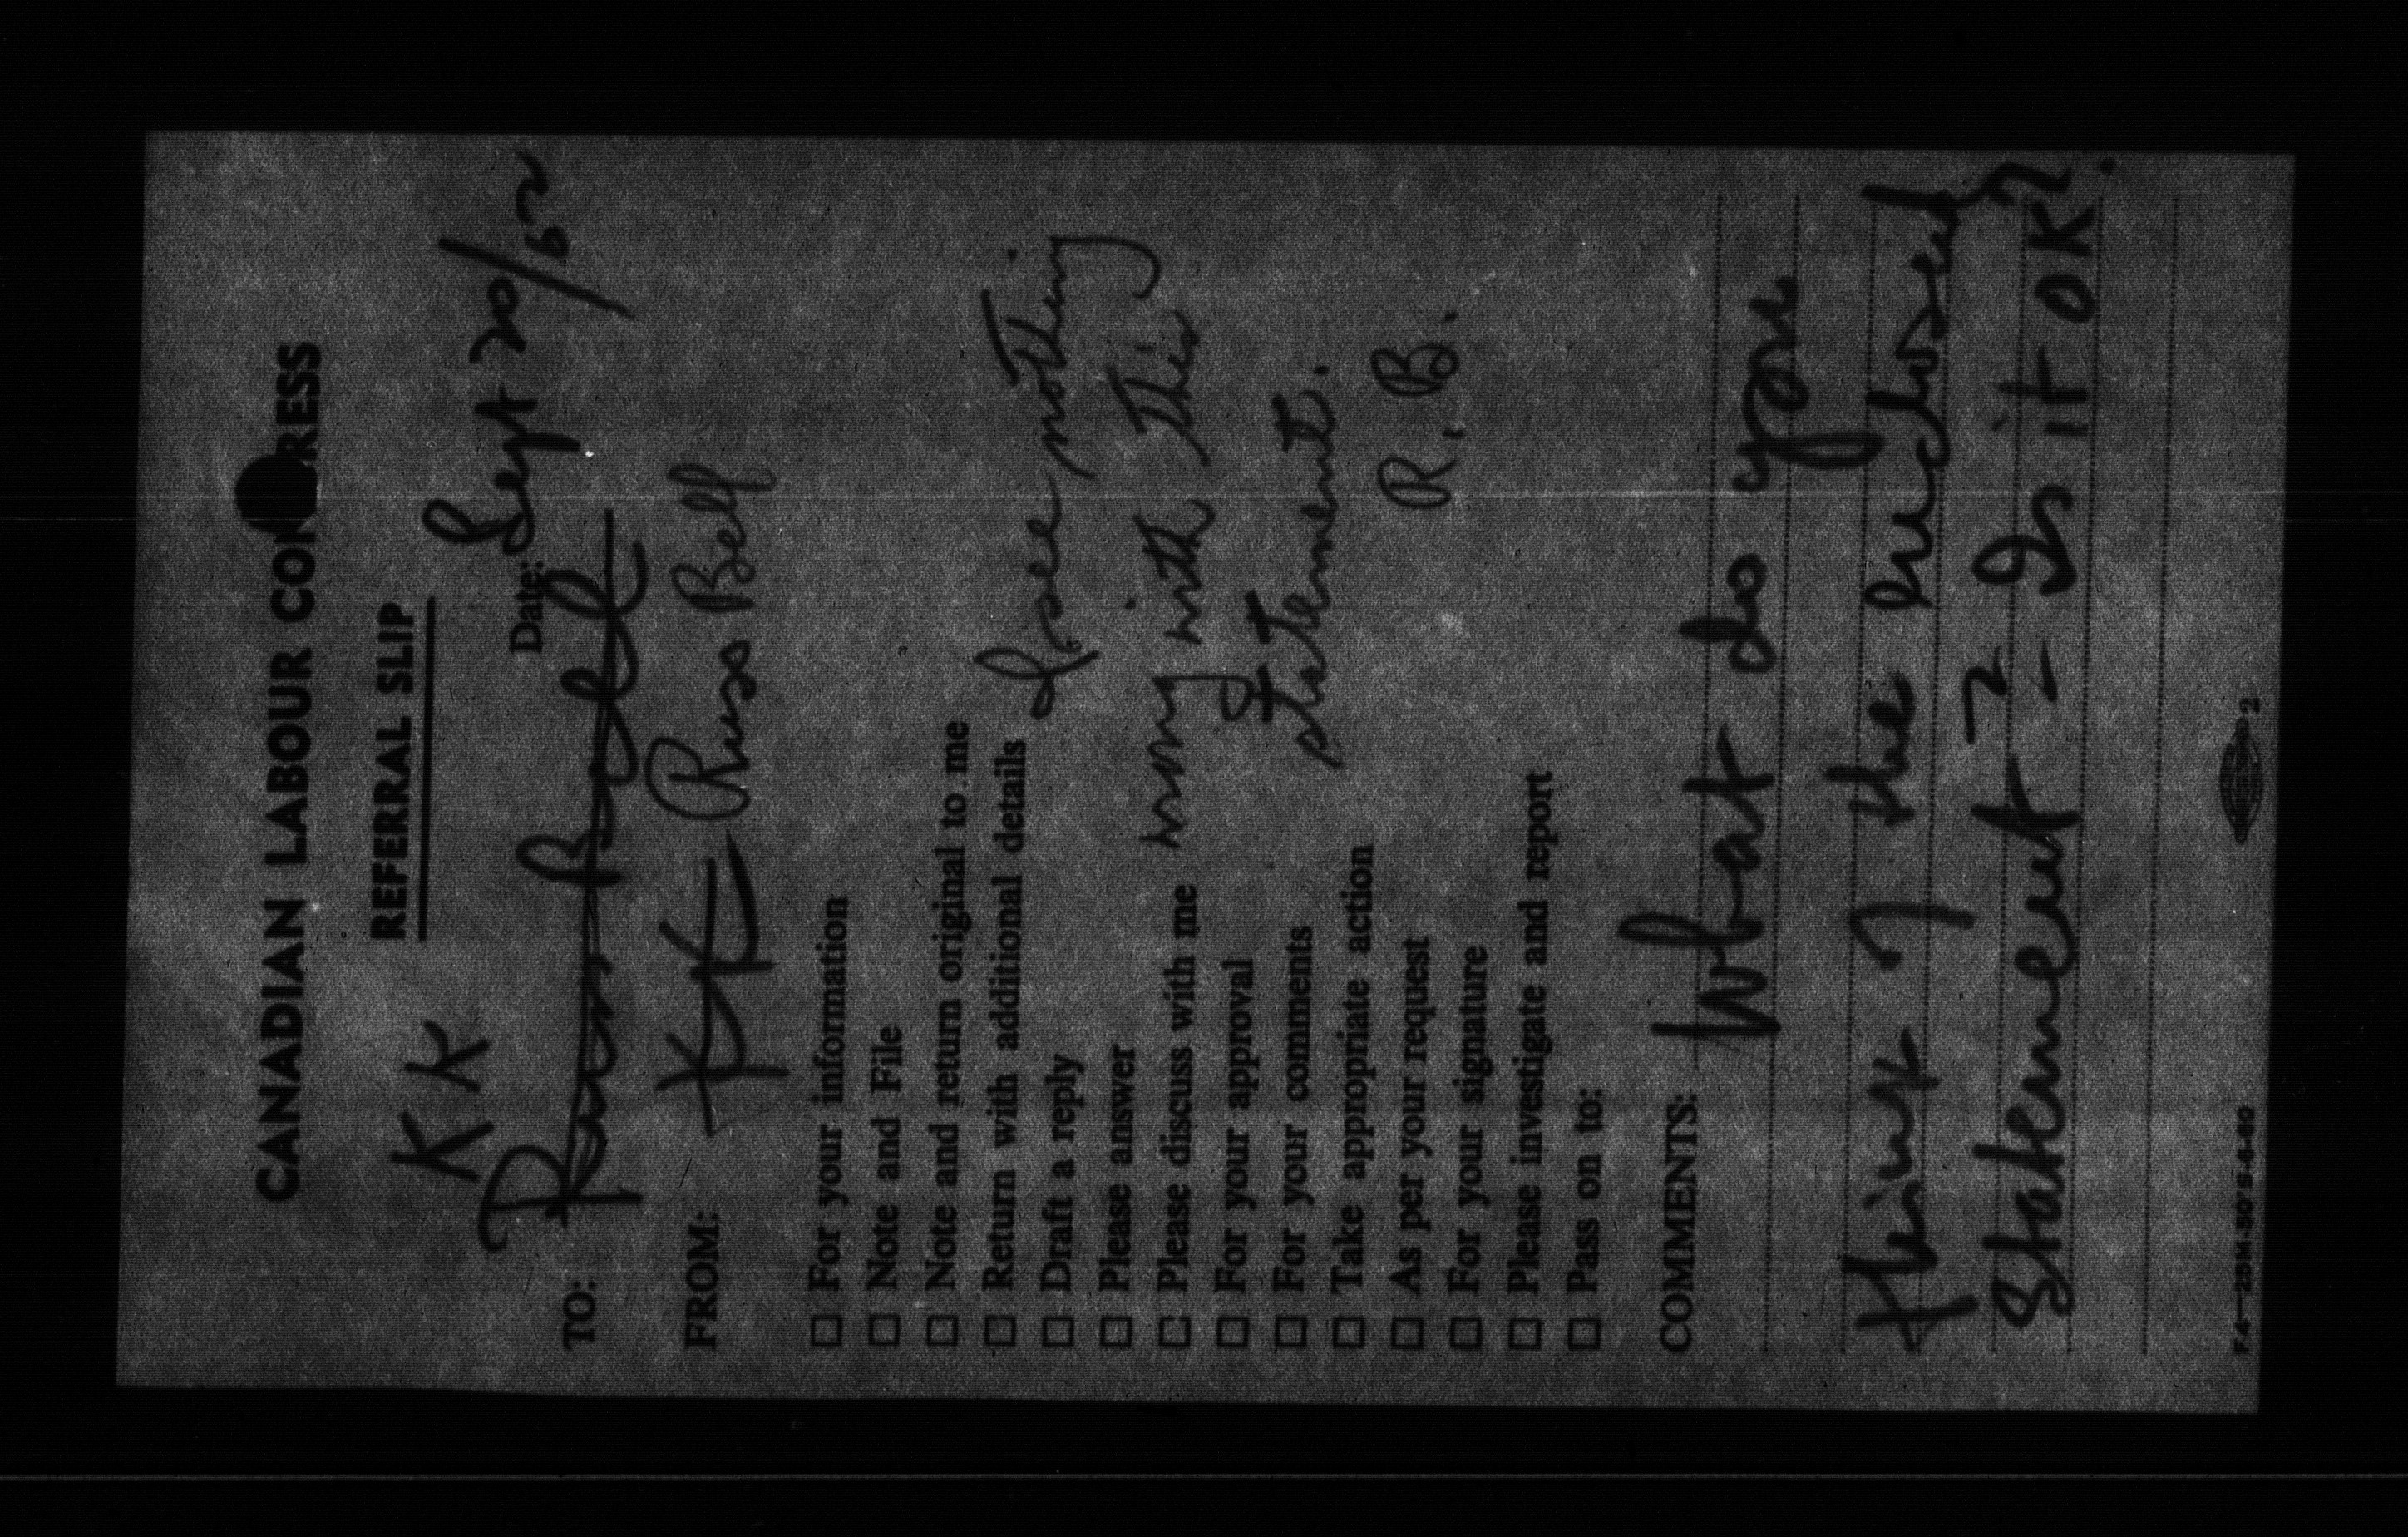 CANADIAN LABOUR CONGRESS
REFERRAL SLIP
KK
Date: Sept 20/62
TO: Russ Bell
FROM: KK Russ Bell
☐ For your information
☐ Note and File
☐ Note and return original to me
☐ Return with additional details
☐ Draft a reply
☐ Please answer
☐ Please discuss with me
☐ For your approval
☐ For your comments
☐ Take appropriate action
☐ As per your request
☐ For your signature
☐ Please investigate and report
☐ Pass on to:
I see nothing
wrong with this
statement.
R. B.
COMMENTS: What do you
think of the enclosed
statement? - Is it OK?
F.4-25M-50'S-6-60
2